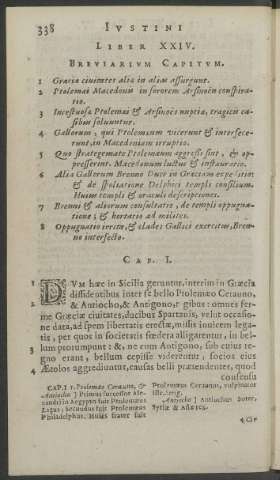 338 IVSTINI
LIBER XXIV.
BREVIARIVM CAPITVM.
1 Græciæ civitates aliæ in alias assurgunt.
2 Ptolemæi Macedonis in sororem Arsinoën conspiratio.
3 Incestuosæ Ptolemæi & Arsinoës nuptiæ, tragicis casibus solvuntur.
4 Gallorum, qui Ptolemæum vicerunt & interfecerunt, in Macedoniam irruptio.
5 Quo strategemate Ptolemæum aggressi sint, & oppresserint. Macedonum luctus & instauratio.
6 Alia Gallorum Brenno Duce in Græciam expeditio: & de spoliatione Delphici templi consilium. Hujus templi & oraculi descriptiones.
7 Brenni & aliorum consultatio, de templi oppugnatione; & hortatio ad milites.
8 Oppugnatio irrita, & clades Gallici exercitus, Brenno interfecto.
CAP. I.
1 DVM hæc in Sicilia geruntur, interim in Græcia
dissidentibus inter se bello Ptolemæo Cerauno,
2 & Antiocho, & Antigono, regibus: omnes fer-
me Græciæ civitates, ducibus Spartanis, velut occasio-
ne data, ad spem libertatis erectæ, missis invicem lega-
tis, per quos in societatis fœdera alligarentur, in bel-
3 lum prorumpunt: &, ne cum Antigono, sub cujus re-
gno erant, bellum cepisse viderentur, socios ejus
4 Ætolos aggrediuntur, causas belli prætendentes, quod
consensu
CAP. I 1. Ptolemæo Cerauno, &
Antiocho ] Primus successor Ale-
xandri in Ægypto fuit Ptolemæus
Lagus; secundus fuit Ptolemæus
Philadelphus. Hujus frater fuit
Ptolemæus Ceraunus,
Antiocho ] Antiochus Soter,
Syriæ & Asiæ